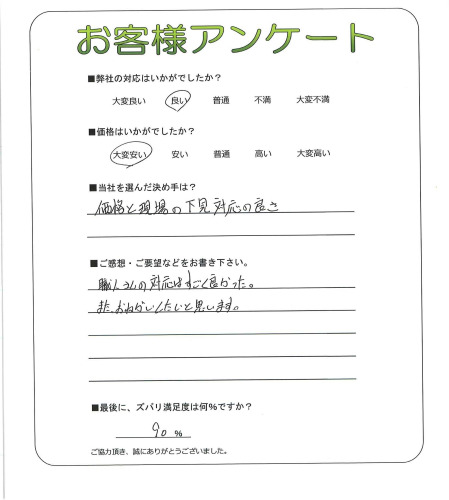 お客様アンケート
■弊社の対応はいかがでしたか?
大変良い 良い 普通 不満 大変不満
■価格はいかがでしたか?
大変安い 安い 普通 高い 大変高い
■当社を選んだ決め手は?
価格と現場の下見対応の良さ
■ご感想・ご要望などをお書き下さい。
職人さんの対応はすごく良かった。
また、おねがいしたいと思います。
■最後に、ズバリ満足度は何%ですか?
90 %
ご協力頂き、誠にありがとうございました。